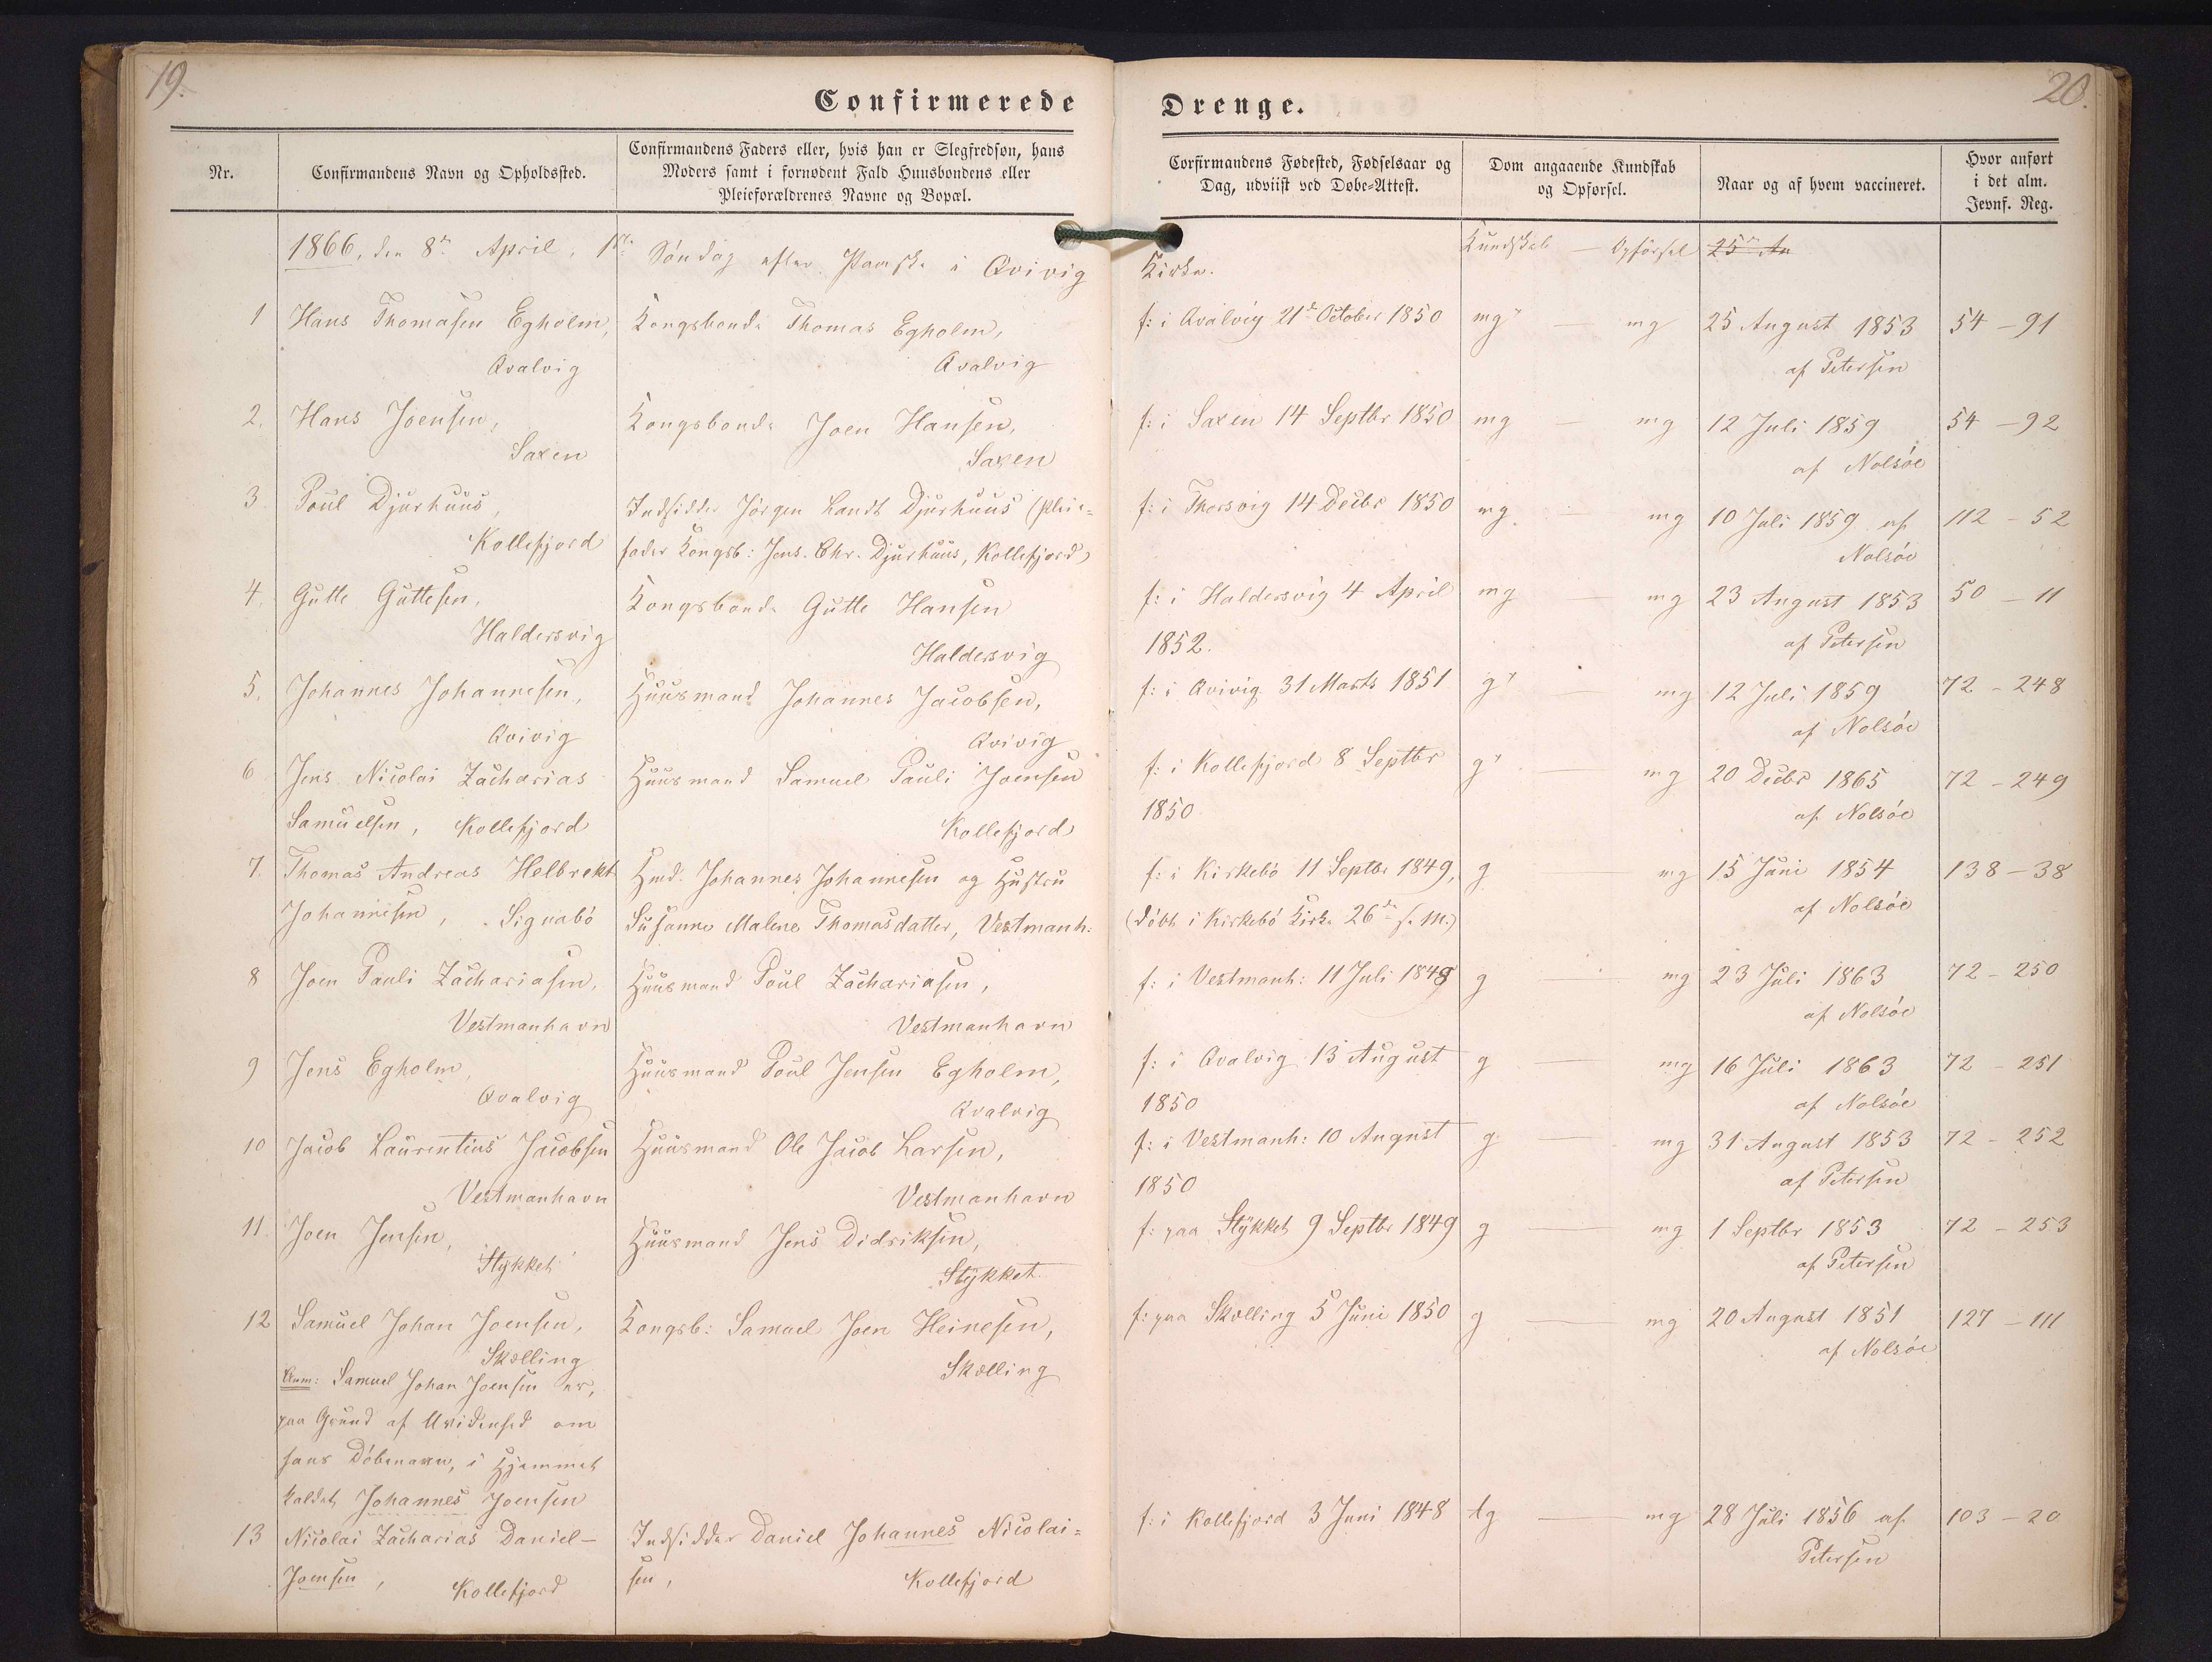 19.
20.
Confirmerede Drenge.
Nr.
Confirmandens Navn og Opholdssted.
Confirmandens Faders eller, hvis han er Slegfredsøn, hans
Moders samt i fornødent Fald Huusbondens eller
Pleieforældrenes Navne og Bopæl.
Corfirmandens Fødested, Fødselsaar og
Dag, udviist ved Døbe-Attest.
Dom angaaende Kundskab
og Opførsel.
Naar og af hvem vaccineret.
Hvor anført
i det alm.
Jevnf. Reg.
1866, den 8de April, 1ste Søndag efter Paaske i Qvivig Kirke.
Kundskab — Opførsel
25de Au
1 Hans Thomasen Egholm, Kongsbonde Thomas Egholm, f: i Qvalvig 21de October 1850 mg — mg 25 August 1853 54 – 91
Qvalvig Qvalvig af Petersen
2. Hans Joensen, Kongsbonde Joen Hansen, f: i Saxen 14 Septbr 1850 mg — mg 12 Juli 1859 54 – 92
Saxen Saxen af Nolsöe
3 Poul Djurhuus, Indsidder Jörgen Landt Djurhuus (Pleie= f: i Thorsvig 14 Decbr 1850 mg — mg 10 Juli 1859 af 112 – 52
Kollefjord fader Kongsb: Jens Chr. Djurhuus, Kollefjord) Nolsöe
4. Gutte Guttesen, Kongsbonde Gutte Hansen f: i Haldersvig 4 April mg — mg 23 August 1853 50 – 11
Haldersvig Haldersvig 1852. af Petersen
5. Johannes Johannesen, Huusmand Johannes Jacobsen, f: i Qvivig 31 Marts 1851 g — mg 12 Juli 1859 72 – 248
Qvivig Qvivig af Nolsöe
6 Jens Nicolai Zacharias Huusmand Samuel Pauli Joensen f: i Kollefjord 8 Septbr g — mg 20 Decbr 1865 72 – 249
Samuelsen, Kollefjord Kollefjord 1850 af Nolsöe
7. Thomas Andreas Helbrekt Hmd. Johannes Johannesen og Hustru f: i Kirkebö 11 Septbr 1849, g — mg 15 Juni 1854 138 – 38
Johannesen, Signabö Susanne Malene Thomasdatter, Vestmanh: (döbt i Kirkebö Kirke 26de s. M.) af Nolsöe
8 Joen Pauli Zachariasen, Huusmand Poul Zachariasen, f: i Vestmanh: 11 Juli 1849 g — mg 23 Juli 1863 72 – 250
Vestmanhavn Vestmanhavn af Nolsöe
9 Jens Egholm, Huusmand Poul Jensen Egholm, f: i Qvalvig 13 August g — mg 16 Juli 1863 72 – 251
Qvalvig Qvalvig 1850 af Nolsöe
10 Jacob Laurentius Jacobsen Huusmand Ole Jacob Larsen, f: i Vestmanh: 10 August g. — mg 31 August 1853 72 – 252
Vestmanhavn Vestmanhavn 1850 af Petersen
11. Joen Jensen, Huusmand Jens Didriksen, f: paa Stykket 9 Septbr 1849 g — mg 1 Septbr 1853 72 – 253
Stykket Stykket af Petersen
12 Samuel Johan Joensen, Kongsb: Samuel Joen Heinesen, f: paa Skælling 5 Juni 1850 g — mg 20 August 1851 127 – 111
Skælling Skælling af Nolsöe
Anm: Samuel Johan Joensen er,
paa Grund af Uvidenhed om
hans Döbenavn, i Hjemmet
kaldet Johannes Joensen
13 Nicolai Zacharias Daniel– Indsidder Daniel Johannes Nicolai= f: i Kollefjord 3 Juni 1848 tg — mg 28 Juli 1856 af 103 – 20
Joensen, Kollefjord sen, Kollefjord Petersen